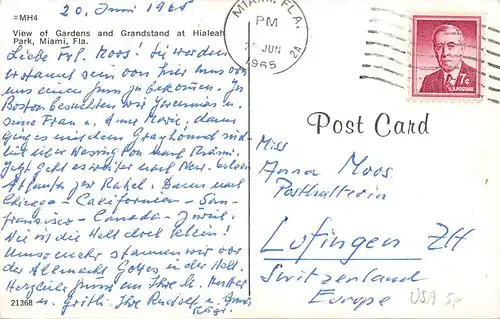 20. Juni 1965
=MH4
View of Gardens and Grandstand at Hialeah
Park, Miami, Fla.
Liebe Frl. Moos! Sie werden
erstaunt sein von hier aus von
uns einen Gruss zu bekommen. In
Boston besuchten wir
seine Frau u. Anne Marie, dann
ging es mit dem Greyhound
über Washington nach Miami.
Jetzt geht es weiter nach New-
Atlanta zu Rahel. Dann nach
Chicago - Californien - San-
Franzisco - Canada - zurück.
Wie ist die Welt doch klein!
Umso mehr staunen wir vor
der Allmacht Gottes in der Welt.
Herzliche Grüsse an Ihre lb. Mutter
u. Gritli. Ihre Rudolf u.
21368
MIAMI, FLA.
PM
JUN
1965
2A
7¢
U.S. POSTAGE
Post Card
Miss
Anna Moos
Posthalterin
Lufingen ZH
Switzerland
Europe
USA